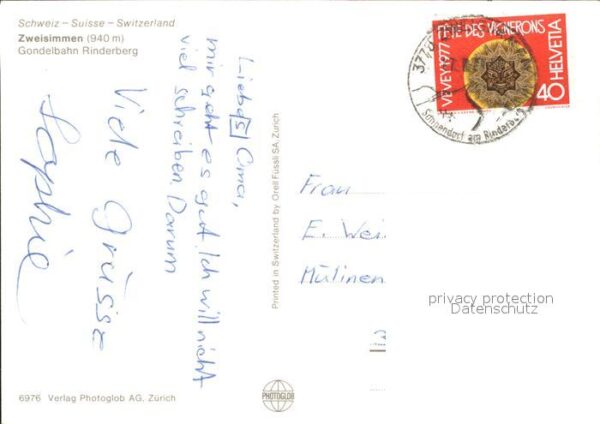 Schweiz – Suisse – Switzerland
Zweisimmen (940 m)
Gondelbahn Rinderberg
Liebe S Oma,
mir geht es gut. Ich will nicht
viel schreiben. Darum
Viele Grüsse
Sophie
Printed in Switzerland by Orell Füssli SA, Zürich
VEVEY 1977 FÊTE DES VIGNERONS
HELVETIA
40
3770
Simmendorf am Rinderberg
Frau
E. Wei
Mülinen
privacy protection
Datenschutz
6976 Verlag Photoglob AG, Zürich
PHOTOGLOB